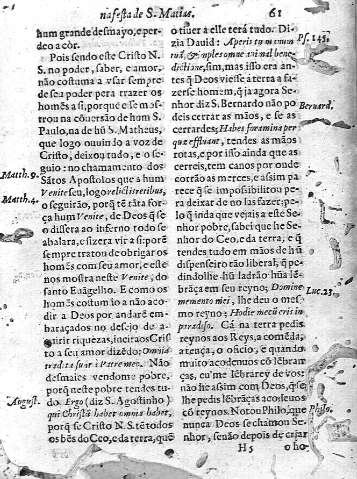 na festa de S. Mattheus.
61
hum grande desmayo, e perdeo
a côr.
Pois sendo este Cristo N.
S. no poder, saber, e amor,
não costuma a usar sempre
de seu poder pera trazer os
homẽs a si, porque e se mostrou
na cõversão de hum S.
Paulo, na de hũ S. Matheus,
que logo ouvindo a voz de
Cristo, deixou tudo, e o seguio:
no chamamento dos
Matth. 9.
Sãtos Apostolos que a hum
Venite seu, logo relictis retibus,
Matth. 4.
o seguirão, porq̃ tẽ tãta força
hum Venite, de Deos q̃ se
o dissera ao inferno todo se
abalara, e fizera vir a si: porẽ
sempre tratou de obrigar os
homẽs com seu amor, e este
nos mostra neste Venite, do
santo Euãgelho. E como os
homẽs costumão a não acodir
a Deos por andarẽ embaraçados
no desejo de adquirir
riquezas, incitaos Cristo
a seu amor dizẽdo: Omnia
tradita sunt à Patre meo. Não
desmaies vendome pobre,
porq̃ neste pobre tendes tudo.
August.
Ergo (diz S. Agostinho)
qui Christũ habet omnia habet,
porque se Cristo N. S. tẽ todos
os bẽs do Ceo, e da terra, quẽ
o tiuer a elle terá tudo. Dizia
Dauid: Aperis tu manum
Ps. 145.
tuã, & imples omne animal benedictione,
sim, mas isso era antes
q̃ Deos viesse à terra a fazerse
homem, q̃ ja agora Senhor
diz S. Bernardo não podeis
Bernard.
cerrar as mãos, e se as
cerrardes; Habes foramina per
quæ effluant, tendes as mãos
rotas, e por isso ainda que as
cerreis, tem canos por onde
corrão as merces, e assim parece
q̃ se impossibilitou pera
deixar de no las fazer: pelo
q̃ inda que vejais a este Senhor
pobre, sabei que he Senhor
do Ceo, e da terra, e q̃
tendes tudo em mãos de hũ
dispenseiro tão liberal, q̃ pedindolhe
hũ ladrão hũa lẽbrãça
em seu reyno; Domine
Luc. 23.
memento mei, lhe deu o mesmo
reyno: Hodie mecũ eris in
paradiso. Cá na terra pedis
reynos aos Reys, a comẽda, a
tença, o officio, e quando
muito acodemnos cõ lẽbranças,
cu'me lẽbrarey de vos:
não he assim com Deos, q̃ se
lhe pedis lẽbrãças acodenos
cõ reynos. Notou Philo, que
Philo.
nunca Deos se chamou Senhor,
senão depois de criar
H 5 o ho-